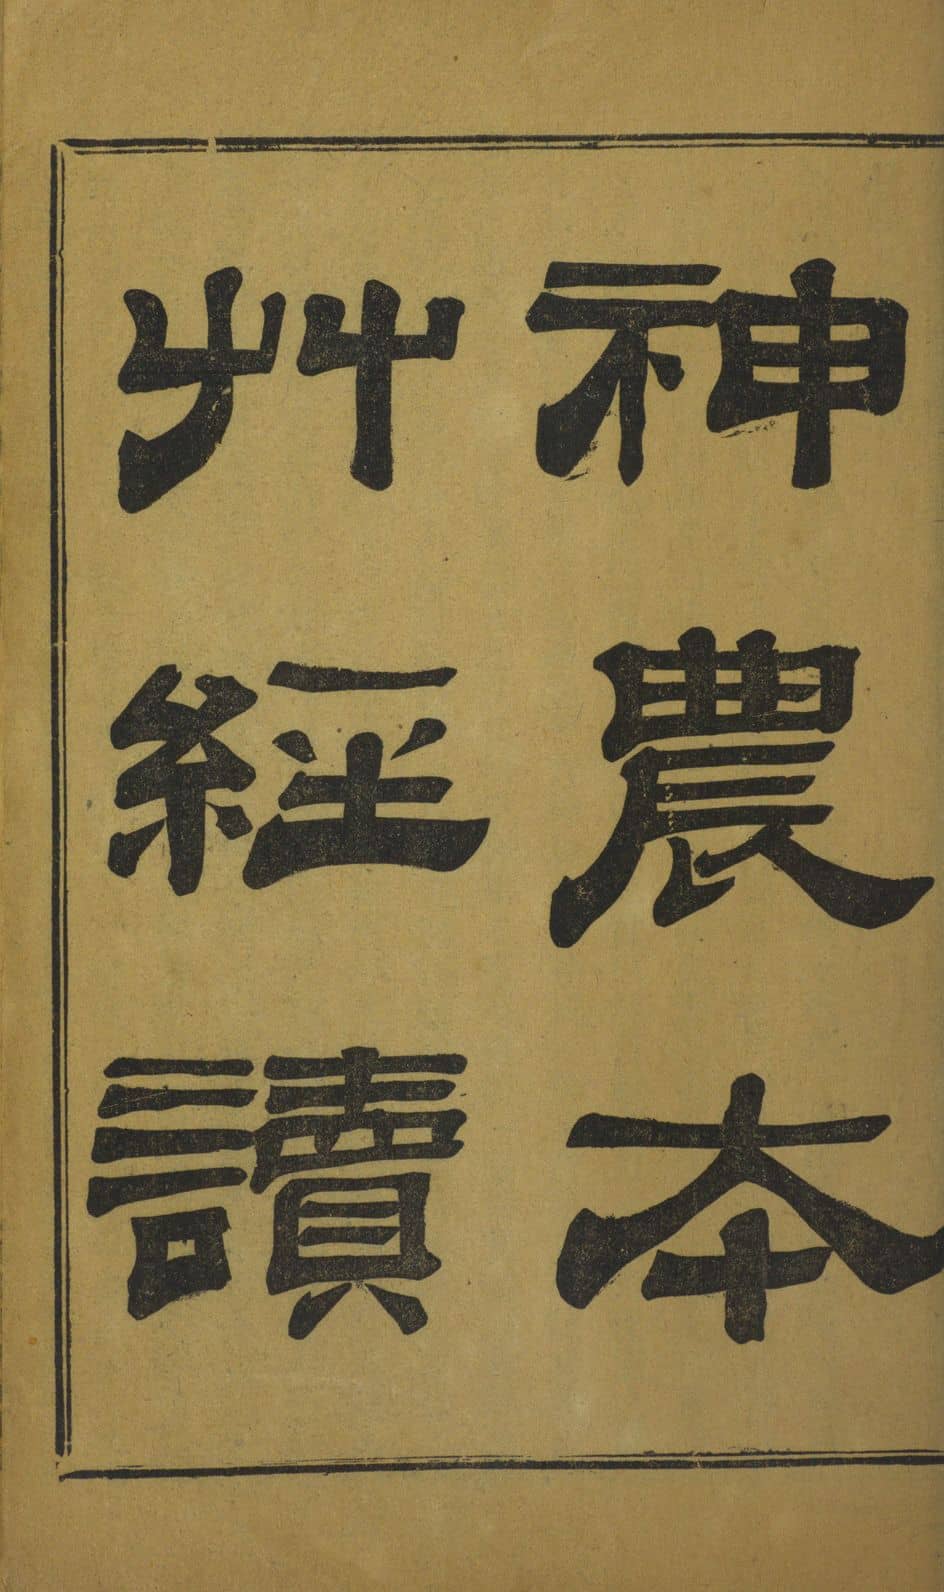 神農本
艸經讀